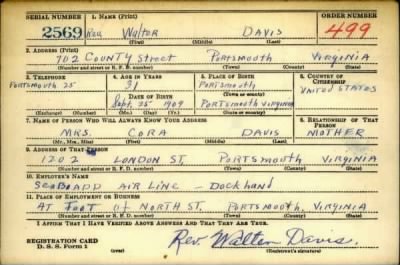 SERIAL NUMBER 1. NAME (Print) ORDER NUMBER
2569 Rev Walter Davis 499
(First) (Middle) (Last)
2. ADDRESS (Print)
702 County Street Portsmouth Virginia
(Number and street or R. F. D. number) (Town) (County) (State)
3. TELEPHONE 4. AGE IN YEARS 5. PLACE OF BIRTH 6. COUNTRY OF CITIZENSHIP
Portsmouth 25 31 Portsmouth United States
DATE OF BIRTH (Town or county)
Sept. 25 1909 Portsmouth Virginia
(Mo.) (Day) (Yr.) (State or country)
7. NAME OF PERSON WHO WILL ALWAYS KNOW YOUR ADDRESS 8. RELATIONSHIP OF THAT PERSON
MRS. CORA DAVIS MOTHER
(Mr., Mrs., Miss) (First) (Middle) (Last)
9. ADDRESS OF THAT PERSON
1202 LONDON ST. PORTSMOUTH VIRGINIA
(Number and street or R. F. D. number) (Town) (County) (State)
10. EMPLOYER'S NAME
SeaBOARD AIR LINE - Dock hand
11. PLACE OF EMPLOYMENT OR BUSINESS
AT FOOT of NORTH ST. PORTSMOUTH. VIRGINIA
(Number and street or R. F. D. number) (Town) (County) (State)
I AFFIRM THAT I HAVE VERIFIED ABOVE ANSWERS AND THAT THEY ARE TRUE.
REGISTRATION CARD
D. S. S. Form 1 (over)
Rev. Walter Davis.
(Registrant's signature)